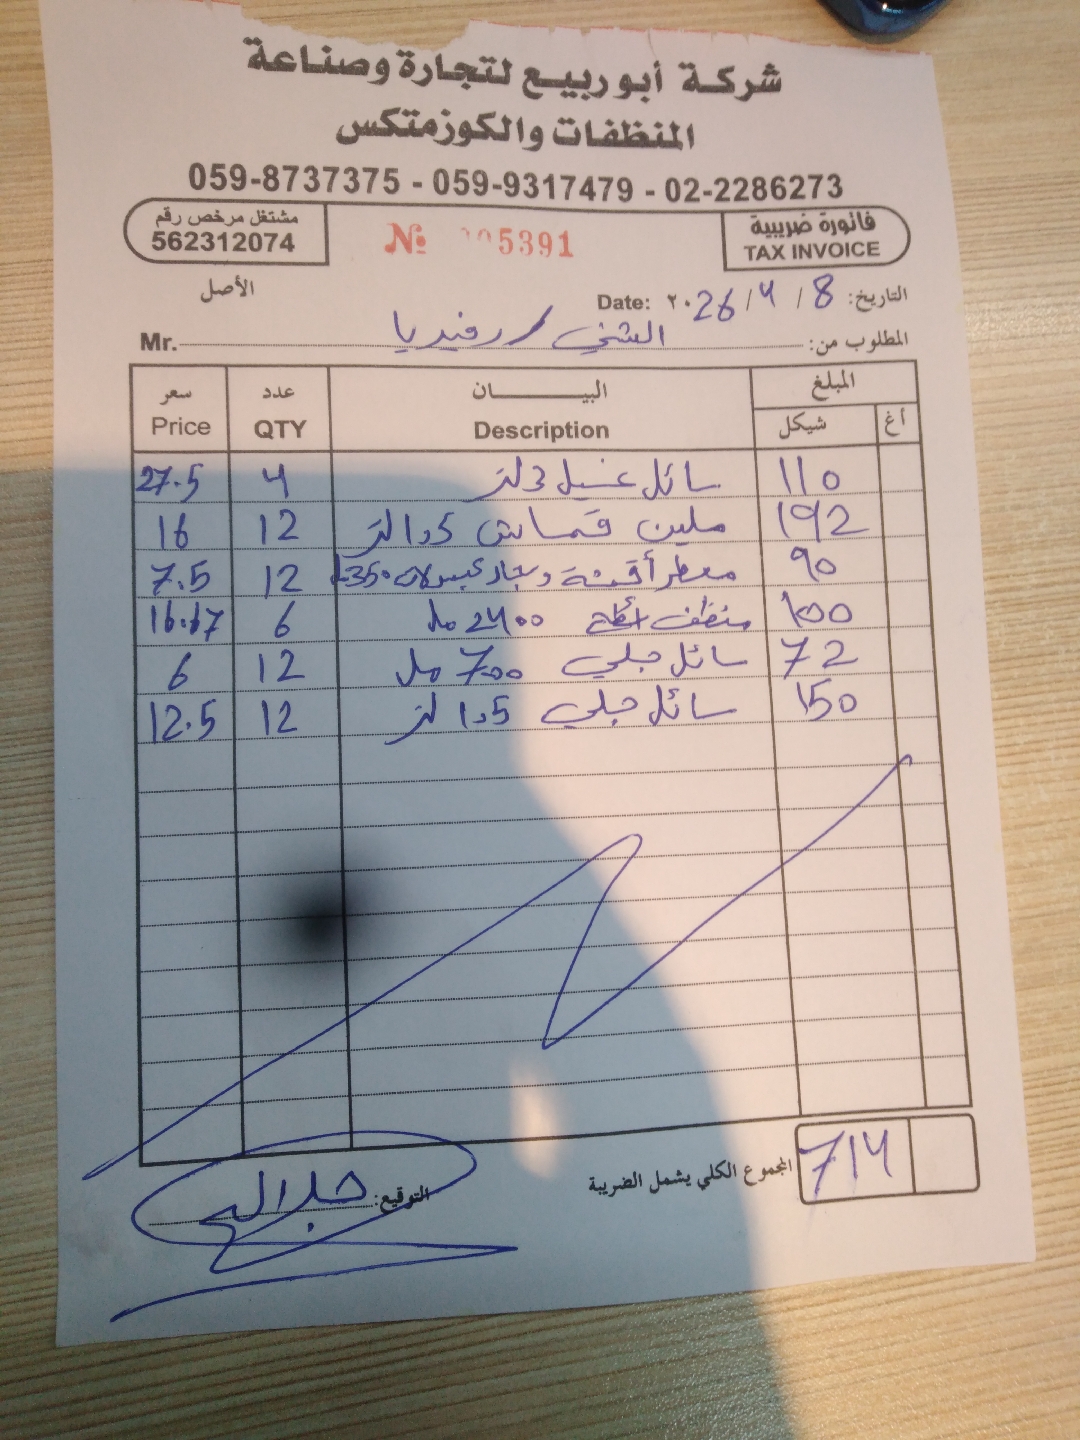 شركة أبو ربيع لتجارة وصناعة
المنظفات والكوزمتكس
059-8737375 - 059-9317479 - 02-2286273
فاتورة ضريبية
TAX INVOICE
№ 005391
مشتغل مرخص رقم
562312074
الأصل
التاريخ: 8 / 4 / ٢٠26 Date:
المطلوب من: الشني / رفيديا Mr.
المبلغ البيـــــان عدد سعر
أغ شيكل Description QTY Price
110 سائل غسيل 3 لتر 4 27.5
192 ملين قماش 1.5 لتر 12 16
90 معطر أقمشة وسجاد 350 12 7.5
100 منظف 2400 مل 6 16.67
72 سائل جلي 700 مل 12 6
150 سائل جلي 1.5 لتر 12 12.5
المجموع الكلي يشمل الضريبة 714
التوقيع: